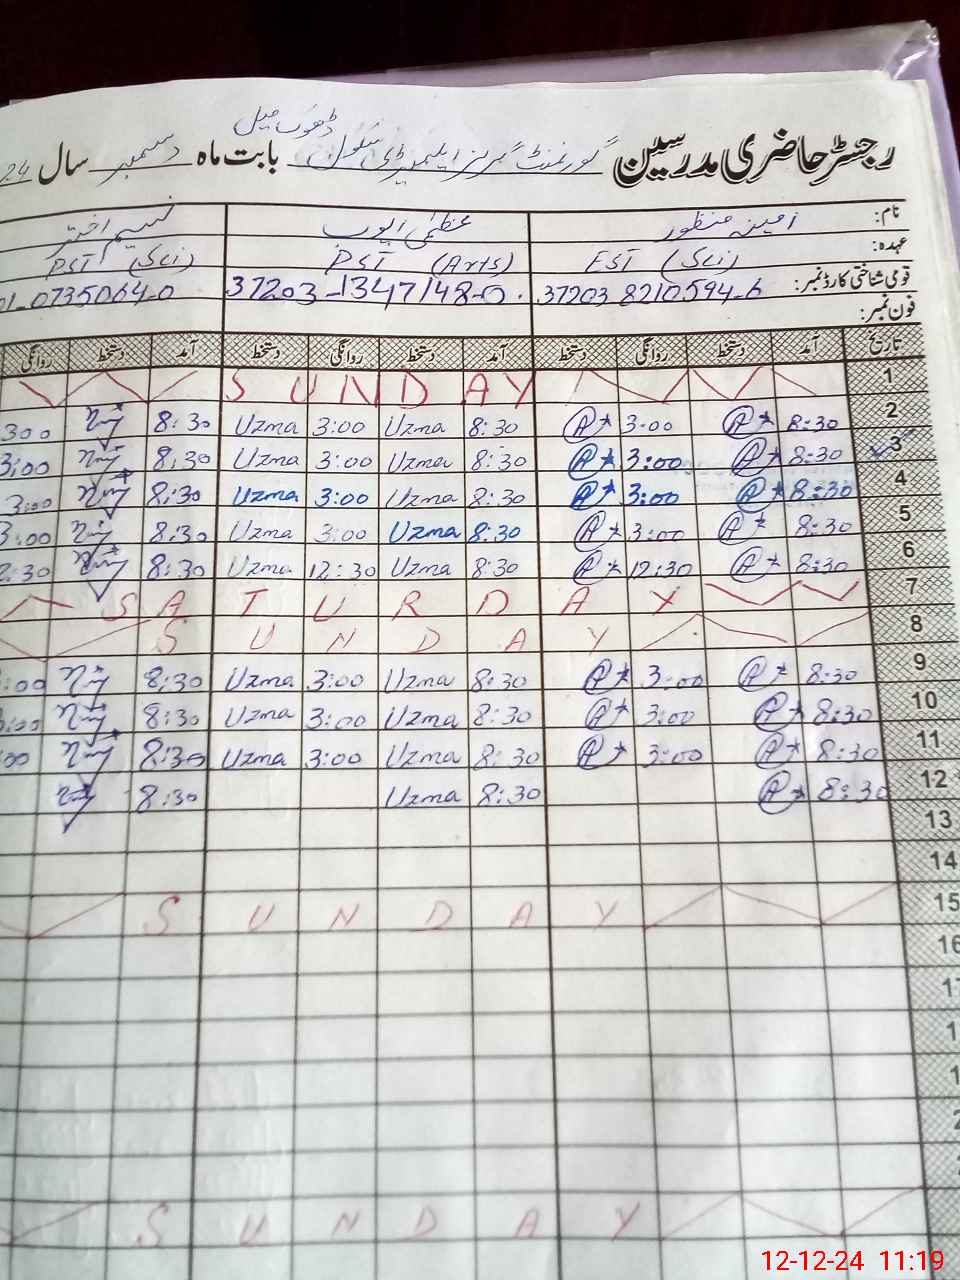 ڈھوب میل
رجسٹر حاضری مدرسین گورنمنٹ گرلز ایلیمنٹری سکول بابت ماہ دسمبر سال 24
نام: امینہ منظور عظمیٰ ایوب نسیم اختر
عہدہ: EST (Sci) PST (Arts) PST (Sci)
قومی شناختی کارڈ نمبر: 37203 8210594-6 37203-1347148-0. 01-0735064-0
فون نمبر:
تاریخ آمد دستخط روانگی دستخط آمد دستخط روانگی دستخط آمد دستخط روانگی
1 SUNDAY
2 8:30 A 3:00 A 8:30 Uzma 3:00 Uzma 8:30 300
3 8:30 A 3:00 A 8:30 Uzma 3:00 Uzma 8:30 3:00
4 8:30 A 3:00 A 8:30 Uzma 3:00 Uzma 8:30 3:00
5 8:30 A 3:00 A 8:30 Uzma 3:00 Uzma 8:30 3:00
6 8:30 A 12:30 A 8:30 Uzma 12:30 Uzma 8:30 2:30
7 SATURDAY
8 SUNDAY
9 8:30 A 3:00 A 8:30 Uzma 3:00 Uzma 8:30 :00
10 8:30 A 3:00 A 8:30 Uzma 3:00 Uzma 8:30 3:00
11 8:30 A 3:00 A 8:30 Uzma 3:00 Uzma 8:30 00
12 8:30 A 8:30 Uzma 8:30
13
14
15 SUNDAY
16
SUNDAY
12-12-24 11:19